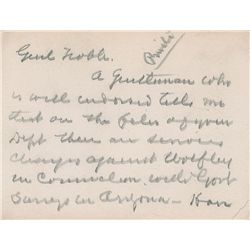 Genl Noble.
A Gentleman who
is well endorsed tells me
that on the files of your
Dept there are serious
charges against Wolfley
in Connection with Govt
Surveys in Arizona - Have